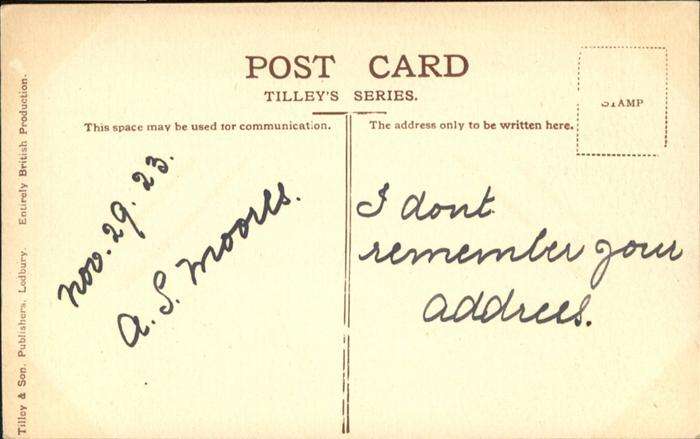 POST CARD
TILLEY'S SERIES.
This space may be used for communication.
The address only to be written here.
STAMP
Nov. 29. 23.
A. S. Moores.
I dont
remember your
address.
Tilley & Son, Publishers, Ledbury. Entirely British Production.